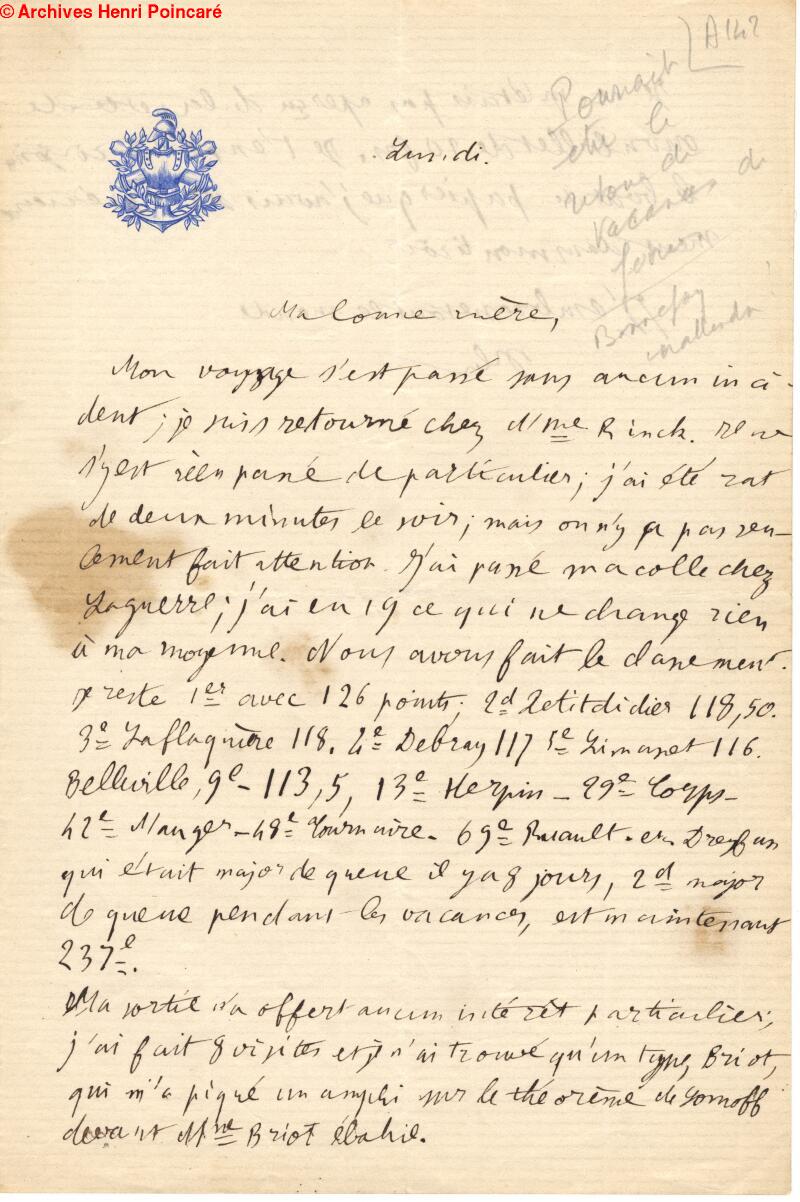 © Archives Henri Poincaré
A 142
Pourrait
être le
retour de
vacances de
Bonnefoy
malade
Lundi.
Ma bonne mère,
Mon voyage s'est passé sans aucun inci-
dent; je suis retourné chez Mme Rinck. Il ne
s'y est rien passé de particulier; j'ai été rat
de deux minutes le soir; mais on n'y a pas seu-
lement fait attention. J'ai passé ma colle chez
Laguerre; j'ai eu 19 ce qui ne change rien
à ma moyenne. Nous avons fait le classement.
Je reste 1er avec 126 points; 2d Petitdidier 118,50.
3e Laflaquière 118. 4e Debray 117 5e Limasset 116.
Belliville, 9e - 113,5, 13e Herpin - 29e Corps -
42e Mauger - 48e Tournaire - 69e Ruault - en Dreyfus
qui était major de queue il y a 8 jours, 2d major
de queue pendant les vacances, est maintenant
237e.
Ma sortie n'a offert aucun intérêt particulier;
j'ai fait 8 visites et je n'ai trouvé qu'un type, Briot,
qui m'a piqué un amphi sur le théorème de
devant Mme Briot ébahie.